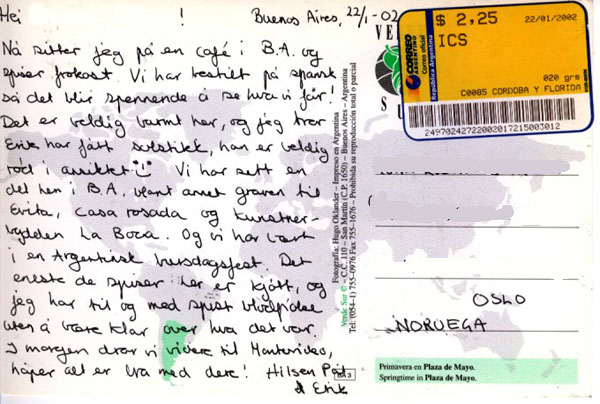 Hei !
Buenos Aires, 22/1-02
Nå sitter jeg på en café i B.A. og
spiser frokost. Vi har bestilt på spansk
så det blir spennende å se hva vi får!
Det er veldig varmt her, og jeg tror
Erik har fått solstikk, han er veldig
rød i ansiktet! Vi har sett en
del her i B.A. blant annet graven til
Evita, Casa rosada og kunstner-
bydelen La Boca. Og vi har vært
i en Argentinsk bursdagsfest. Det
eneste de spiser her er kjøtt, og
jeg har til og med spist blodpølse
uten å være klar over hva det var.
I morgen drar vi videre til Montevideo,
håper alt er bra med dere! Hilsen
& Erik
Fotografía: Hugo Oklander – Impreso en Argentina
Verde Sur © – C.C. 110 – San Martín (C.P. 1650) – Buenos Aires – Argentina
Tel: (054-1) 755-0976 Fax 755-1676 – Prohibida su reproducción total o parcial
BA 3
VE
SU
CORREO
ARGENTINO
Correo oficial
República Argentina
$ 2,25
22/01/2002
ICS
020 grs
C0085 CORDOBA Y FLORIDA
24970242722002017215003012
OSLO
NORUEGA
Primavera en Plaza de Mayo.
Springtime in Plaza de Mayo.